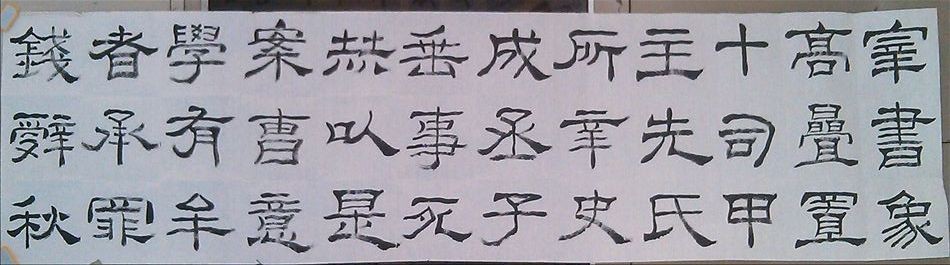 宰書象
高疊置
十司甲
主先氏
所辛史
成丞子
垂事死
恭以是
案曹意
學有牟
者承罪
錢辭秋